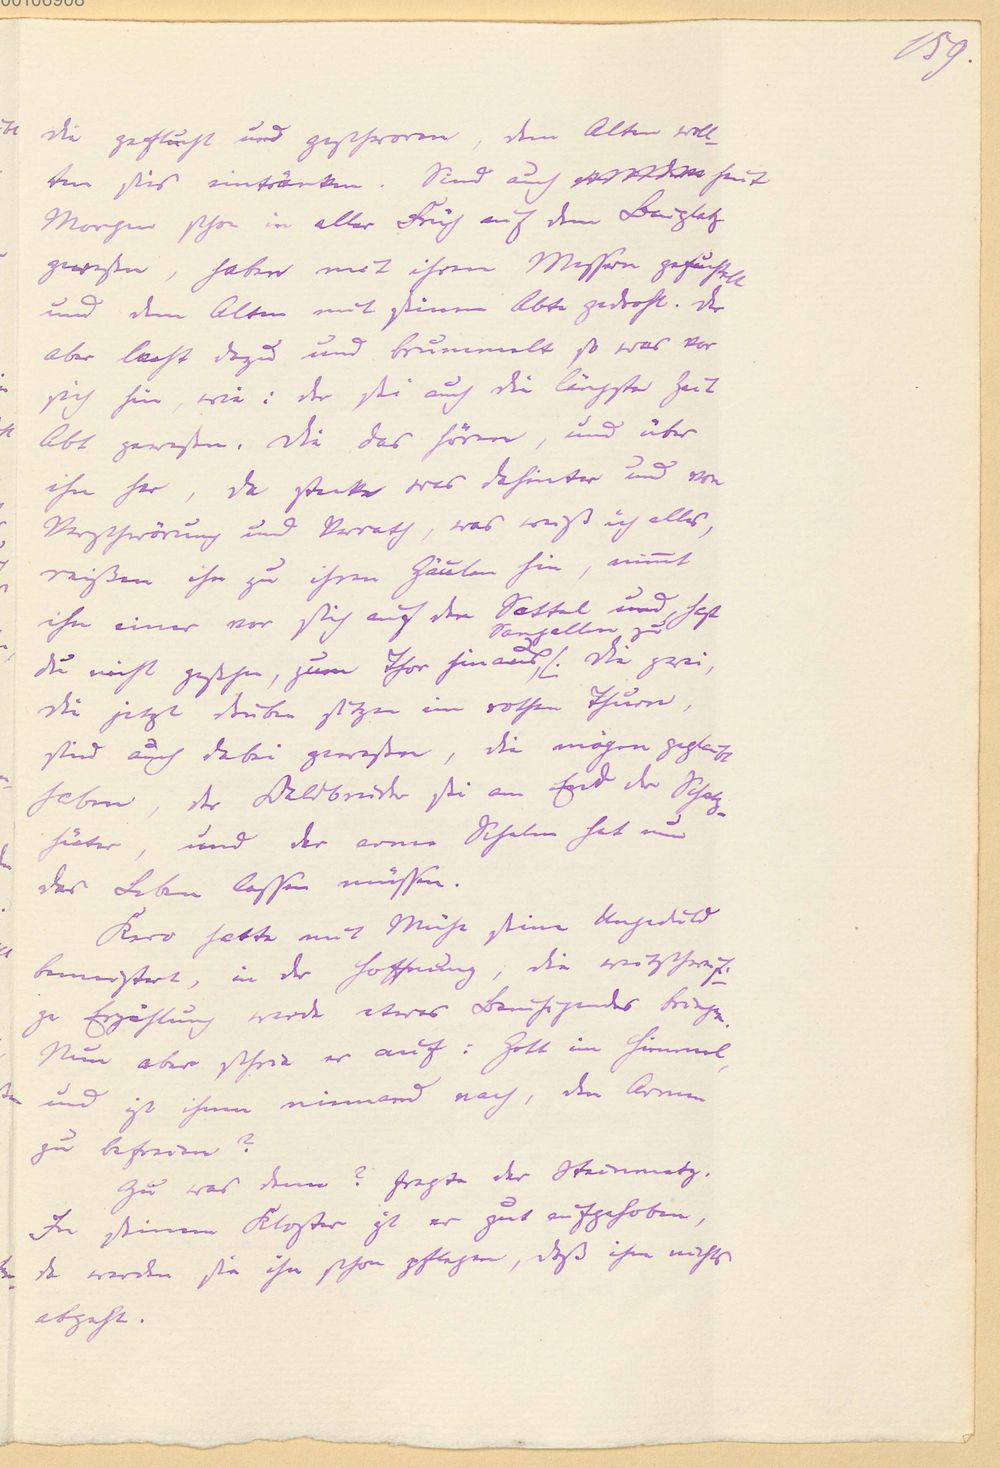 00106908
159.
die geflucht und geschworen, dem Alten woll-
ten sies eintränken. Sind auch heut
Morgen schon in aller Früh auf dem Bauplatz
gewesen, haben mit ihren Messern gefuchtelt
und dem Alten mit seinem Abte gedroht. Der
aber lacht dazu und brummelt so was vor
sich hin, wie: der sei auch die längste Zeit
Abt gewesen. Die das hören, und über
ihn her, da stecke was dahinter und von
Verschwörung und Verrath, was weiß ich alles,
reißen ihn zu ihren Gäulen hin, nimmt
ihn einer vor sich auf den Sattel und, hast
Sangallen zu
du nicht gesehn, zum Thor hinaus. Die zwei,
die jetzt drüben sitzen im rothen Thurm,
sind auch dabei gewesen, die mögen geglaubt
haben, der Waldbruder sei am End der Schatz-
hüter, und der arme Schelm hat nun
das Leben lassen müssen.
Kero hatte mit Mühe seine Ungeduld
bemeistert, in der Hoffnung, die weitschweifi-
ge Erzählung werde etwas Beruhigendes bringen.
Nun aber schrie er auf: Gott im Himmel,
und ist ihnen niemand nach, den Armen
zu befreien?
Zu was denn? fragte der Steinmetz.
In seinem Kloster ist er gut aufgehoben,
da werden sie ihn schon pflegen, daß ihm nichts
abgeht.